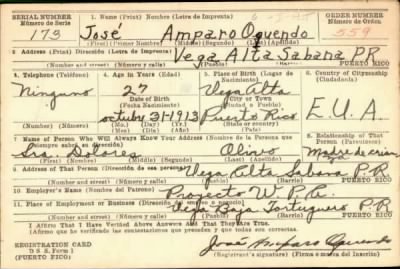 SERIAL NUMBER
Número de Serie
173
1. Name (Print) Nombre (Letra de Imprenta)
ORDER NUMBER
Número de Orden
559
José Amparo Oquendo
(First) (Primer Nombre) (Middle) (Segundo) (Last) (Apellido)
2. Address (Print) Dirección (Letra de Imprenta)
Vega Alta Sabana P.R.
(Number and street) (Número y calle) (Town) (Pueblo) (Barrio) PUERTO RICO
3. Telephone (Teléfono)
Ninguno
4. Age in Years (Edad)
27
Date of Birth
(Fecha Nacimiento)
octubre 31-1913
5. Place of Birth (Lugar de Nacimiento)
Vega Alta
City or Town
(Ciudad o Pueblo)
Puerto Rico
6. Country of Citizenship
(Ciudadanía)
E.U.A.
7. Name of Person Who Will Always Know Your Address (Nombre de la Persona que siempre sabrá su dirección)
Sra. Dolores Olivo
(First) (Middle) (Segundo) (Last) (Apellido)
8. Relationship of That Person (Parentesco)
Madre de crianza
9. Address of That Person (Dirección de esa persona)
Vega Alta Sabana P.R.
(Number and street) (Número y calle) (Town) (Pueblo) (Barrio) PUERTO RICO
10. Employer's Name (Nombre del Patrono)
Proyecto W.P.A.
11. Place of Employment or Business (Dirección del empleo o negocio)
Vega Baja Tortuguero P.R.
(Number and street) (Número y calle) (Town) (Pueblo) (Barrio) PUERTO RICO
I Affirm That I Have Verified Above Answers And That They Are True.
(Afirmo que he verificado las contestaciones que preceden y que todas son ciertas.)
REGISTRATION CARD
D. S. S. Form 1
(PUERTO RICO)
José Amparo Oquendo
(Registrant's signature) (Firma o marca del inscrito)